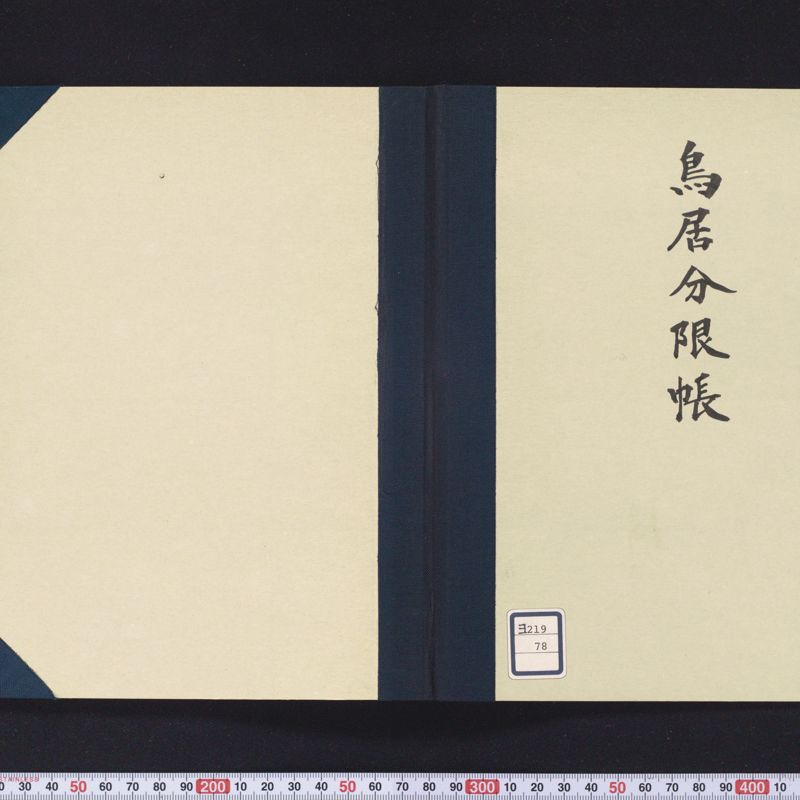 鳥居分限帳
ヨ219
78
STAINLESS
0 30 40 50 60 70 80 90 200 10 20 30 40 50 60 70 80 90 300 10 20 30 40 50 60 70 80 90 400 10